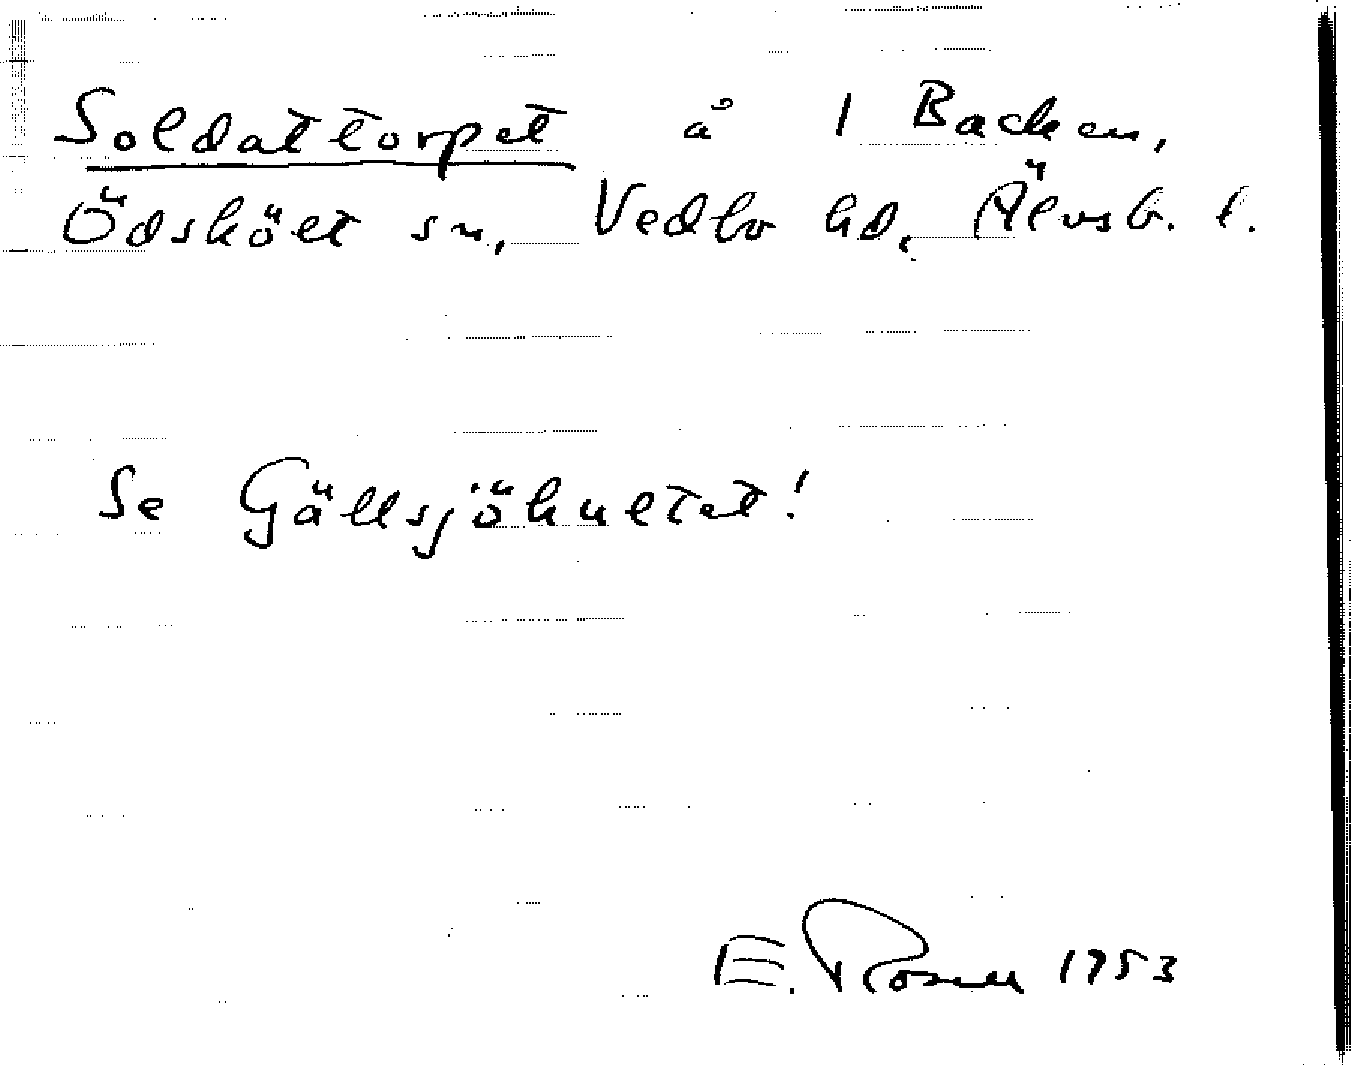 Soldattorpet å 1 Backen,
Ödskölt sn, Vedbo hd, Älvsb. l.
Se Gällsjöhultet!
E. Rosell 1953